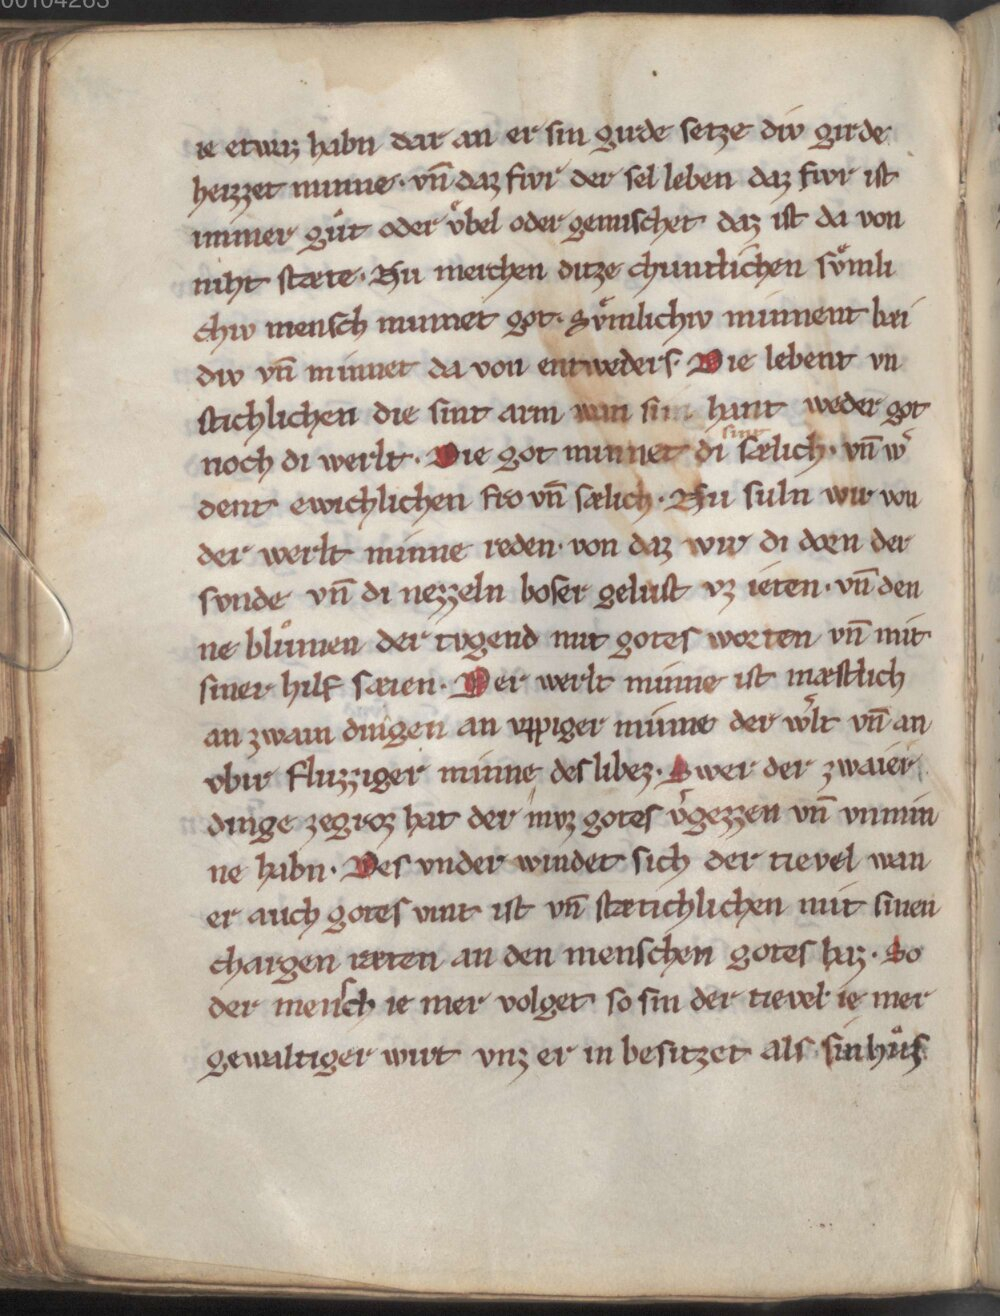 00104263
ie etwaz habn dar an er sin girde setze div girde
heizzet minne· vn̄ daz fivr der sel leben daz fivr ist
immer gůt oder vͤbel oder gemischet daz ist da von
niht stæte· Nu merchen ditze chuntlichen svͤmli
chiv mensch minnet got· Svͤmlichiv minnent bæi
div vn̄ minnet da von entweders· Die lebent vn
stichlichen die sint arm wan sin hant weder got
noch di werlt· Die got minnet di sint sælich· vn̄ w̓
dent ewichlichen fro vn̄ sælich· Nu suln wir von
der werlt minne reden· von daz wir di dorn der
svnde vn̄ di nezzeln boser gelust vz ieten· vn̄ den
ne blůmen der tvgend mit gotes worten vn̄ mit
siner hilf sæien· Der werlt minne ist mæstlich
an zwain dingen an vppiger minne der w̓lt vn̄ an
vbir fluzziger minne des libez· Swer der zwaier
dinge zegroz hat der mvz gotes v̓gezzen vn̄ vnmin
ne habn· Des vnder windet sich der tievel wan
er auch gotes vint ist vn̄ stætichlichen mit sinen
chargen ræten an den menschen gotes haz· So
der mensch ie mer volget so sin der tievel ie mer
gewaltiger wirt vnz er in besitzet als sin hůs